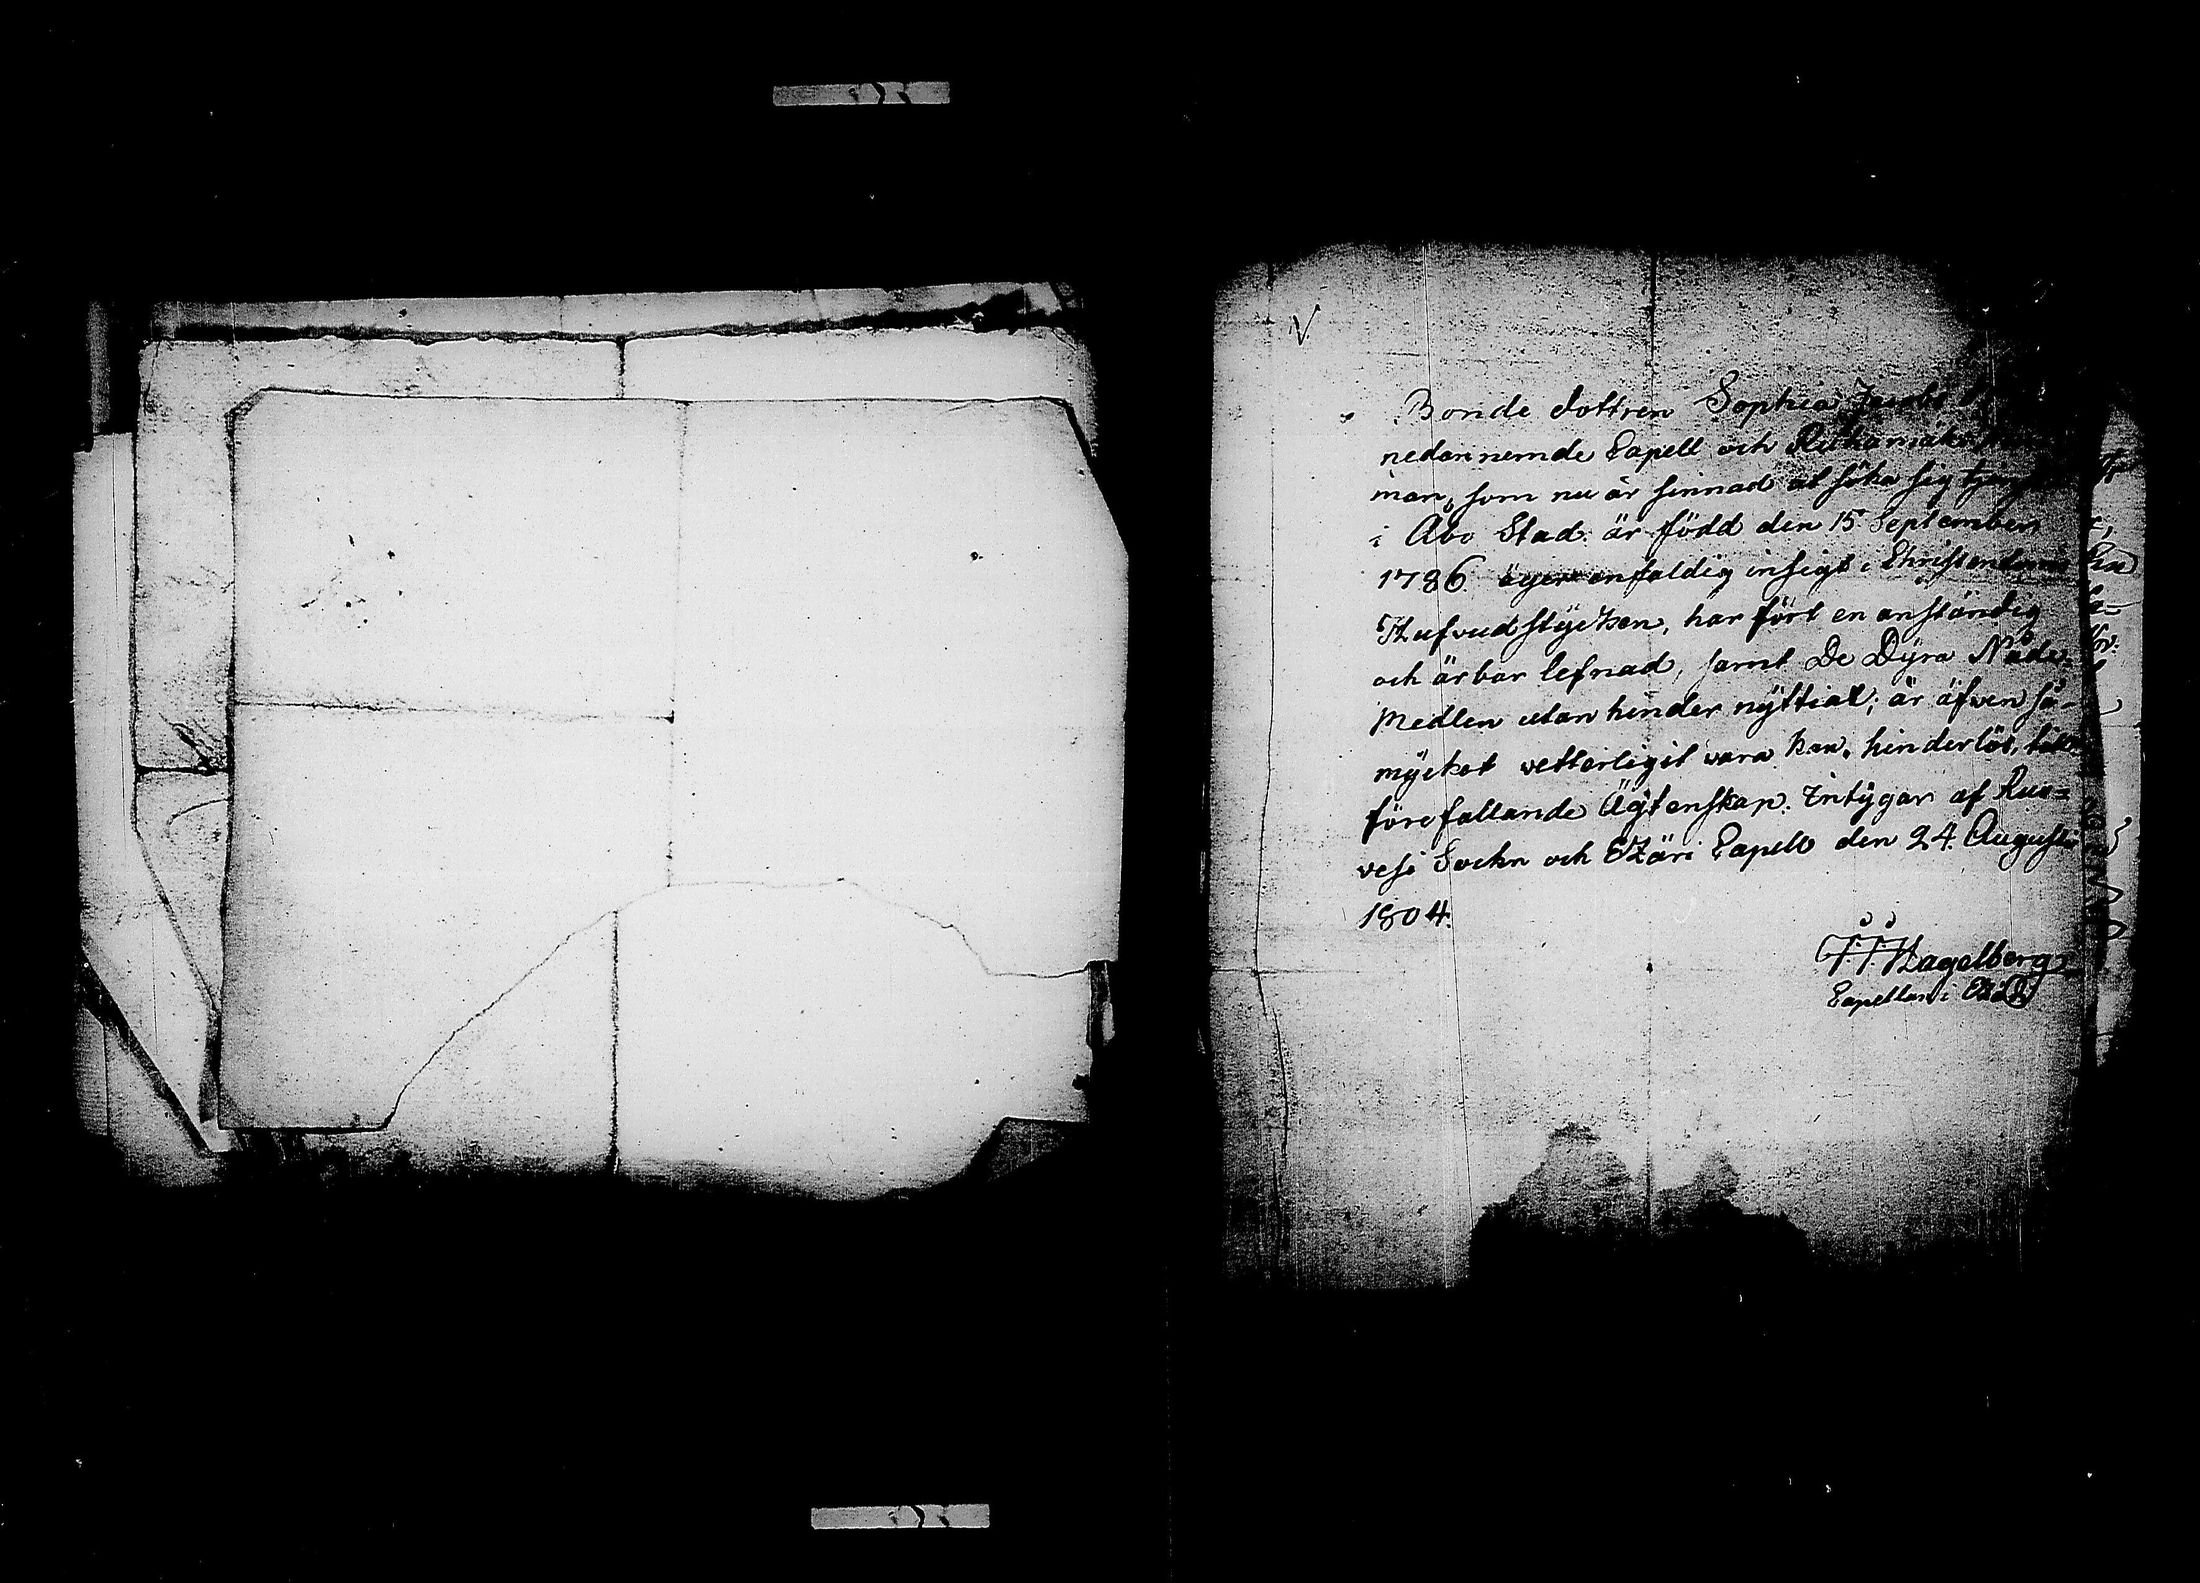 V
Bonde dottren Sophia Jacobs
nedannemde Capell och
man, som nu är sinnad at söka sig
i Åbo Stad. är född den 15 September
1786. äger enfaldig insigt i Christendoms
Hufvudstÿcken, har fört en anständig
och ärbar lefnad, samt De Dÿra Nåde-
Medlen utan hinder nÿttiat; är äfven så-
mÿcket vetterligit vara kan, hinderlös, till
förefallande Ägtenskap. Intÿgar af Ruo=
vesi Sockn och Etzäri Capell den 24. Augusti
1804.
J. J. Hagelberg
Capellan i